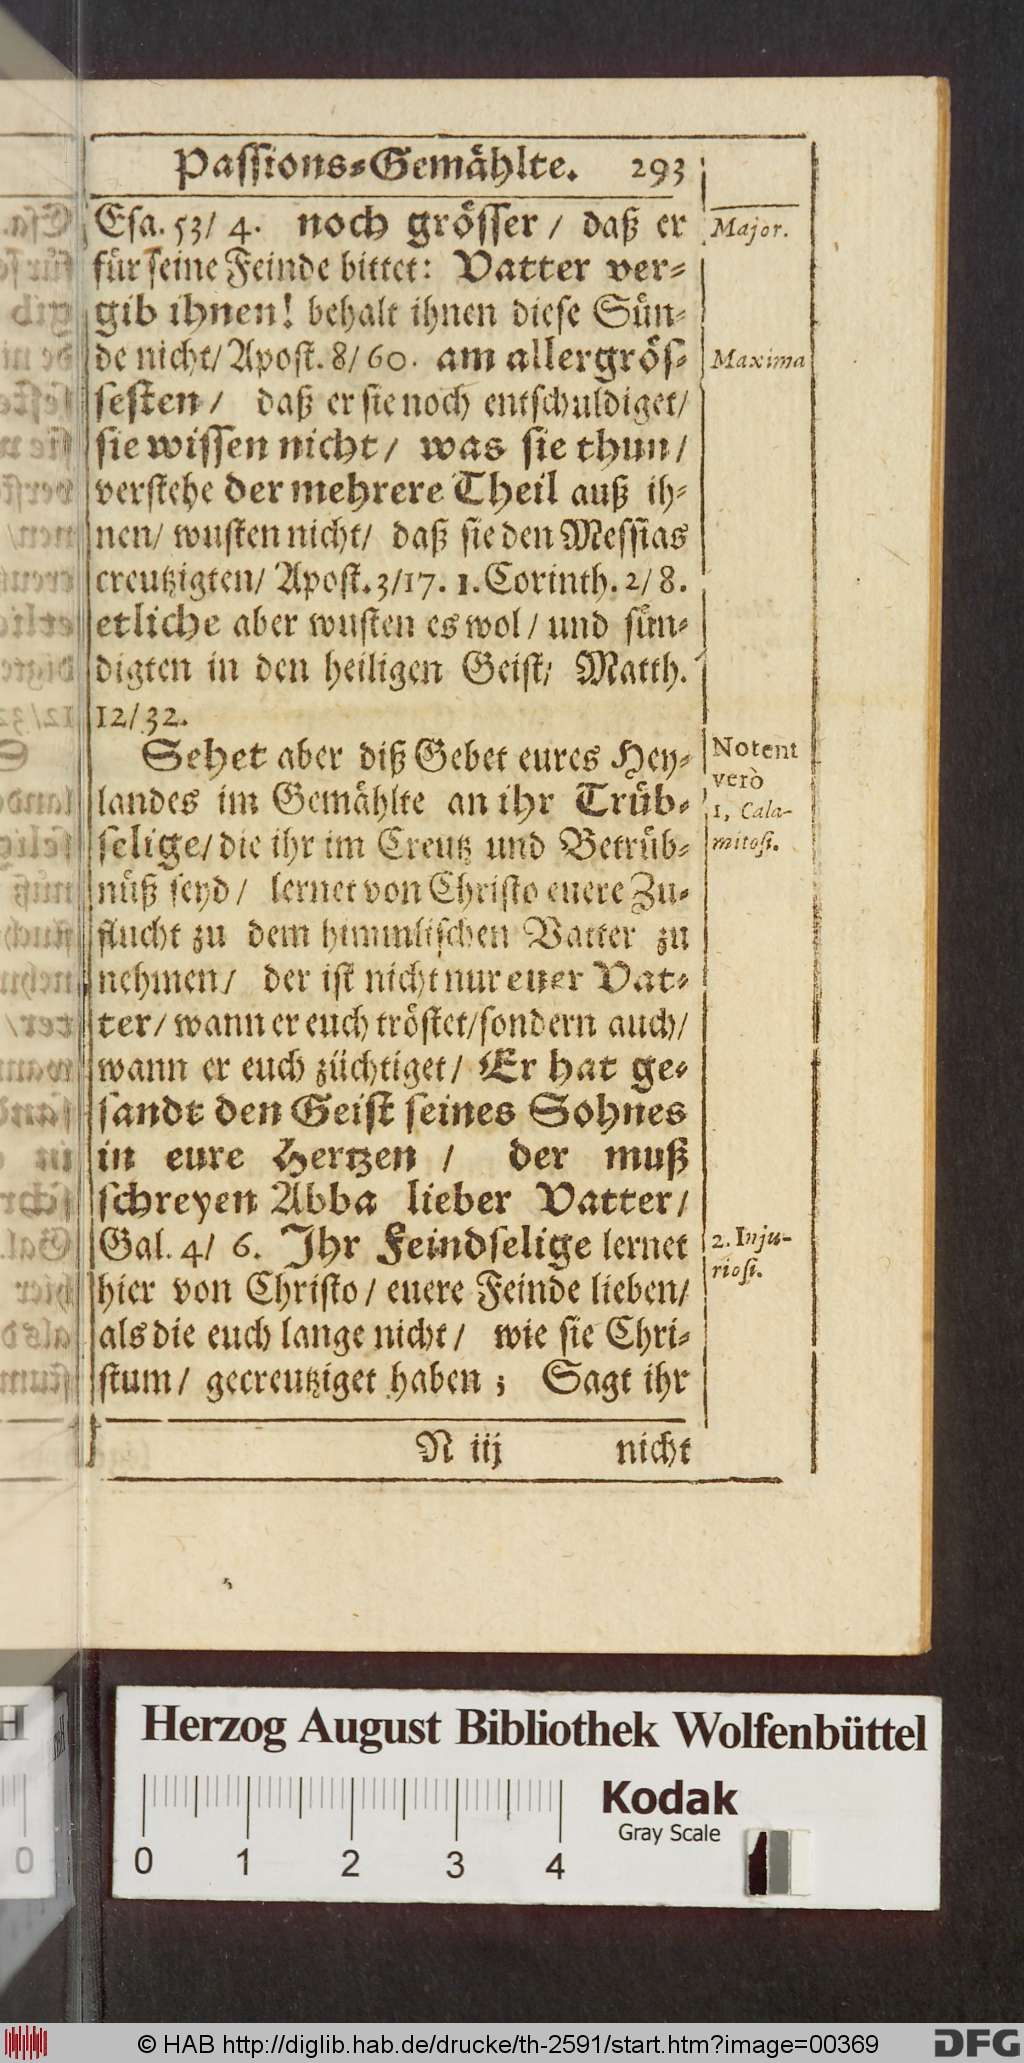 Passions-Gemählte. 293
Esa. 53/ 4. noch grösser / daß er
für seine Feinde bittet: Vatter ver-
gib ihnen! behalt ihnen diese Sün-
de nicht/ Apost. 8/60. am allergrös-
sesten / daß er sie noch entschuldiget/
sie wissen nicht / was sie thun /
verstehe der mehrere Theil auß ih-
nen/ wusten nicht/ daß sie den Messias
creutzigten/ Apost. 3/17. 1. Corinth. 2/ 8.
etliche aber wusten es wol / und sün-
digten in den heiligen Geist/ Matth.
12/32.
Sehet aber diß Gebet eures Hey-
landes im Gemählte an ihr Trüb-
selige/ die ihr im Creutz und Betrüb-
nüß seyd / lernet von Christo euere Zu-
flucht zu dem himmlischen Vatter zu
nehmen / der ist nicht nur euer Vat-
ter / wann er euch tröstet/sondern auch/
wann er euch züchtiget / Er hat ge-
sandt den Geist seines Sohnes
in eure Hertzen / der muß
schreyen Abba lieber Vatter /
Gal. 4/ 6. Ihr Feindselige lernet
hier von Christo / euere Feinde lieben/
als die euch lange nicht / wie sie Chri-
stum / gecreutziget haben ; Sagt ihr
N iij nicht
Major.
Maxima
Notent
verò
1, Cala-
mitosi.
2. Inju-
riosi.
Herzog August Bibliothek Wolfenbüttel
Kodak
Gray Scale
0 1 2 3 4
© HAB http://diglib.hab.de/drucke/th-2591/start.htm?image=00369
DFG